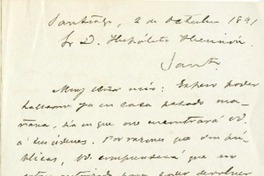 Santiago, 2 de Octubre 1891
Sr. D. Hipólito
Santo
Muy Sr. mio: Espero poder
hallarme ya en casa pasado ma-
ñana, dia en que me encontrará Ud.
a sus órdenes. Por razones que son pú-
blicas, Ud. comprenderá que no
para devolver